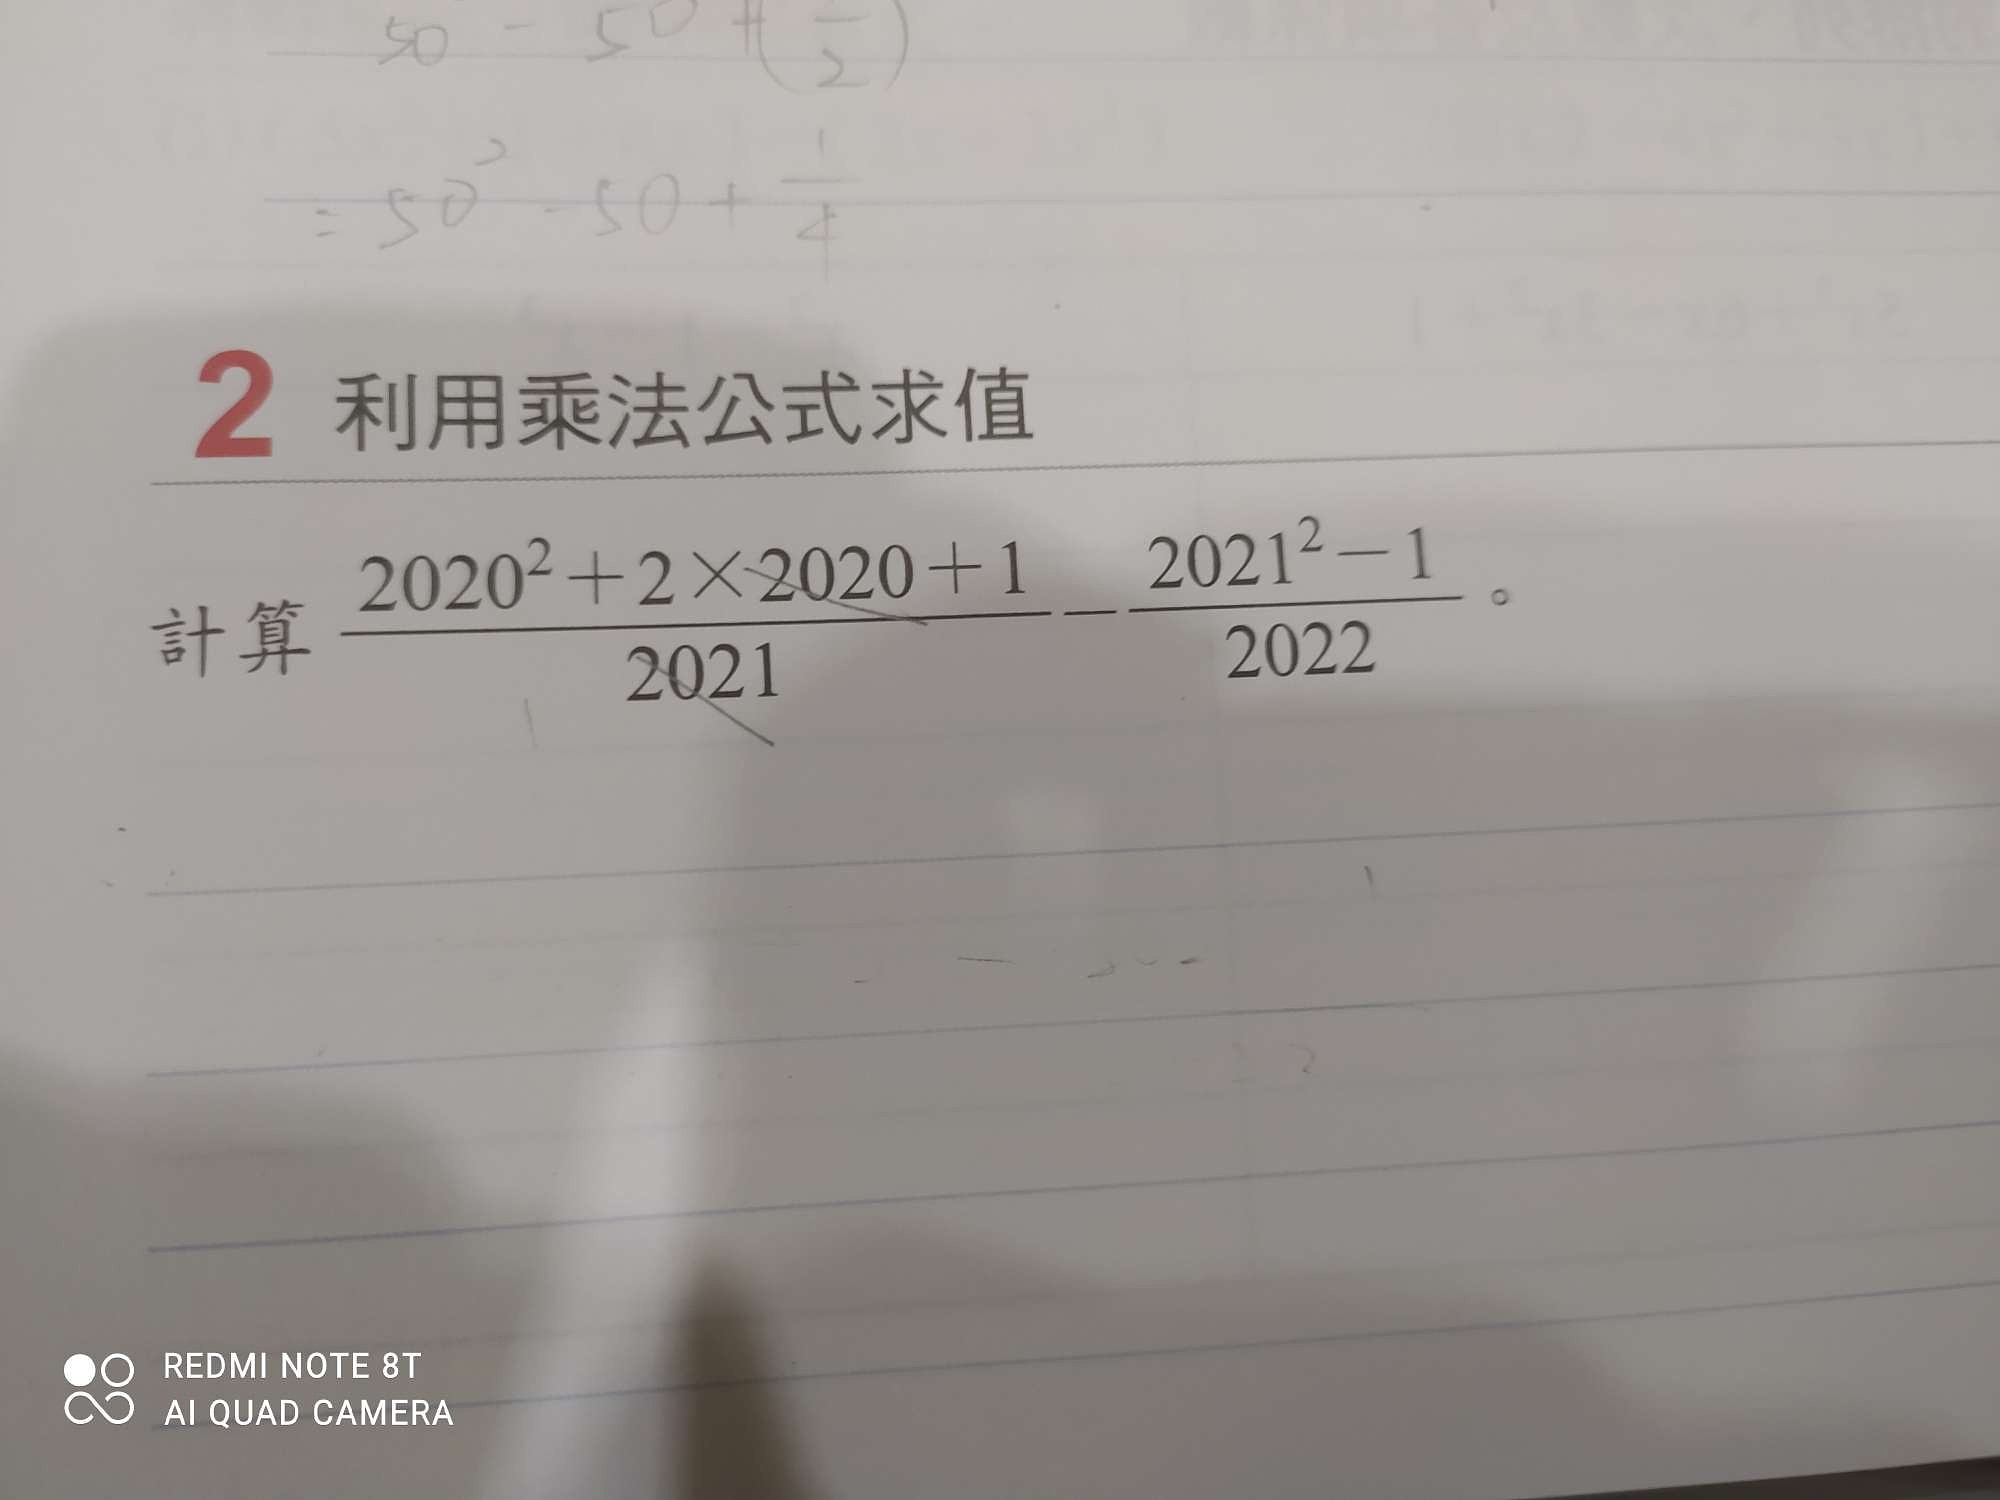 50 - 50 + (1/2)
= 50² - 50 + 1/4
2 利用乘法公式求值
計算 (2020² + 2 × 2020 + 1)/2021 - (2021² - 1)/2022 。
REDMI NOTE 8T
AI QUAD CAMERA